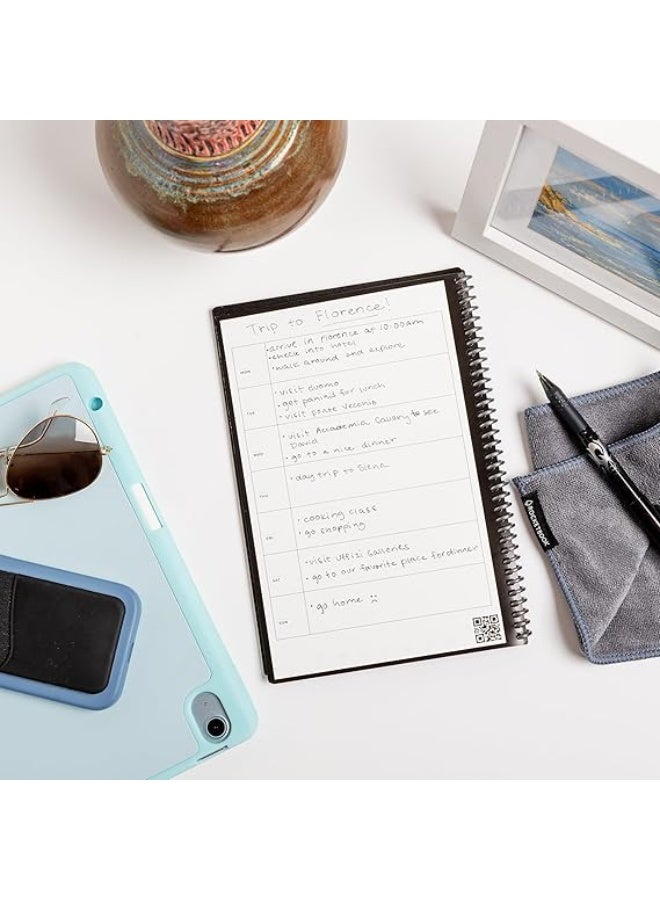 Trip to Florence!
MON
• arrive in Florence at 10:00am
• check into hotel
• walk around and explore
TUE
• visit duomo
• get panini for lunch
• visit Ponte Vecchio
WED
• visit Accademia Gallery to see
David
• go to a nice dinner
THU
• day trip to Siena
FRI
• cooking class
• go shopping
SAT
• visit Uffizi Galleries
• go to our favorite place for dinner
SUN
• go home :(
ROCKETBOOK